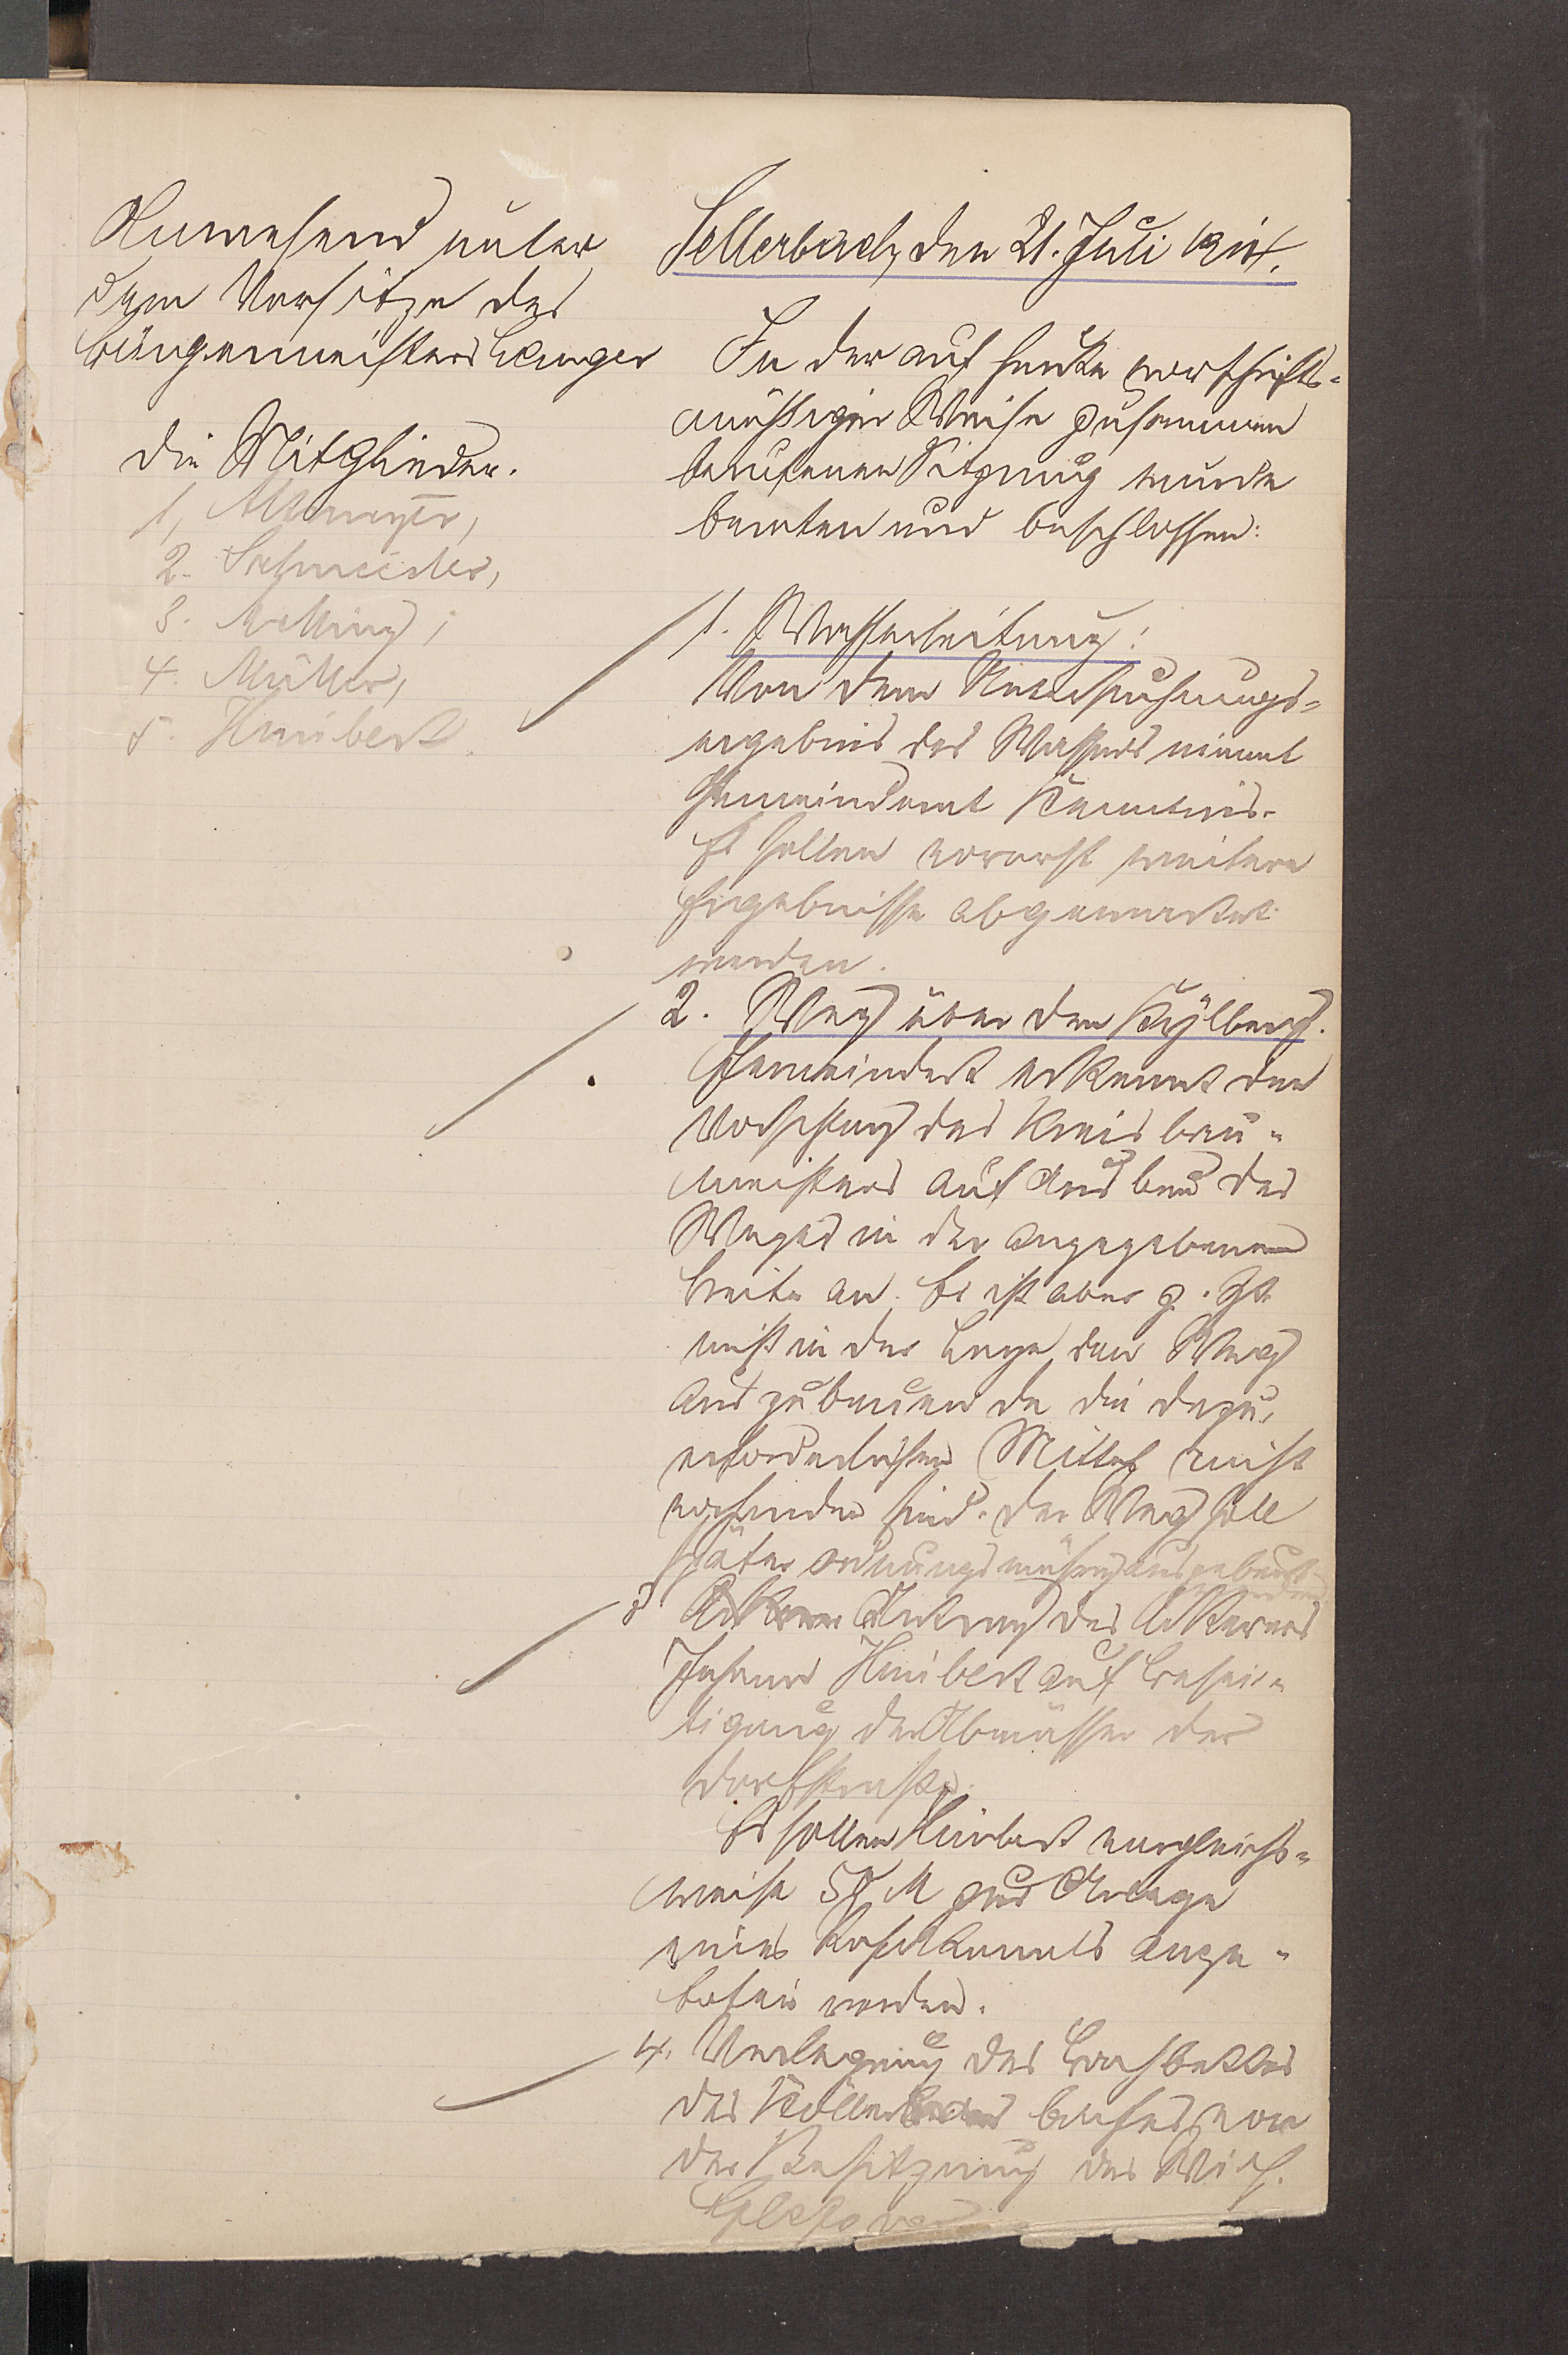 Anwesend unter
dem Vorsitze des
Bürgermeisters Langer
die Mitglieder.
1, Altmeyer,
2. Schneider,
3. Metting,
4. Müller,
5. Humbert.
Sellerbach, den 21. Juli 1914.
In der auf heute vorschrifts-
mäßiger Weise zusammen
berufenen Sitzung wurde
beraten und beschlossen:
1. Wasserleitung:
Von dem Untersuchungs-
ergebnis des Wassers nimmt
Gemeinderat Kenntnis.
Es sollen vorerst weitere
Ergebnisse abgewartet
werden.
2. Weg über den Kylberg.
Gemeinderat erkennt den
Vorschlag des Kreisbau-
meisters auf Ausbau des
Weges in der angegebenen
Breite an. Er ist aber z. Zt.
nicht in der Lage den Weg
auszubauen da die dazu
erforderlichen Mittel nicht
vorhanden sind. Der Weg soll
später ordnungsmäßig ausgebaut
werden
3 Antrag des Ackerers
Johann Humbert auf Besei-
tigung der Abwässer der
Dorfstraße.
Es sollen Humbert vergleichs-
weise 50 M zur Anlage
eines Rohrkanals ange-
boten werden.
4. Verlegung des Bachbettes
des Köllerbaches von
der Besitzung des Wich.